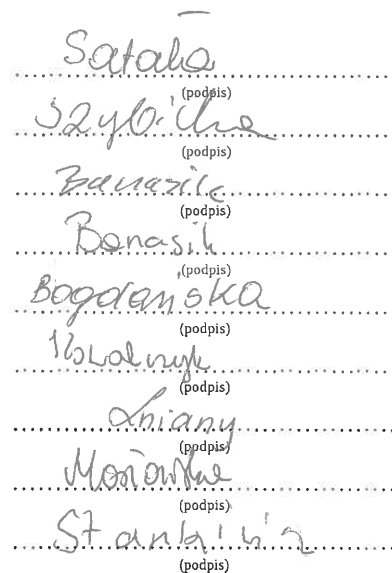 Satała
(podpis)
Szybicka
(podpis)
Banasik
(podpis)
Banasik
(podpis)
Bogdańska
(podpis)
Kowalczyk
(podpis)
Lniany
(podpis)
(podpis)
(podpis)